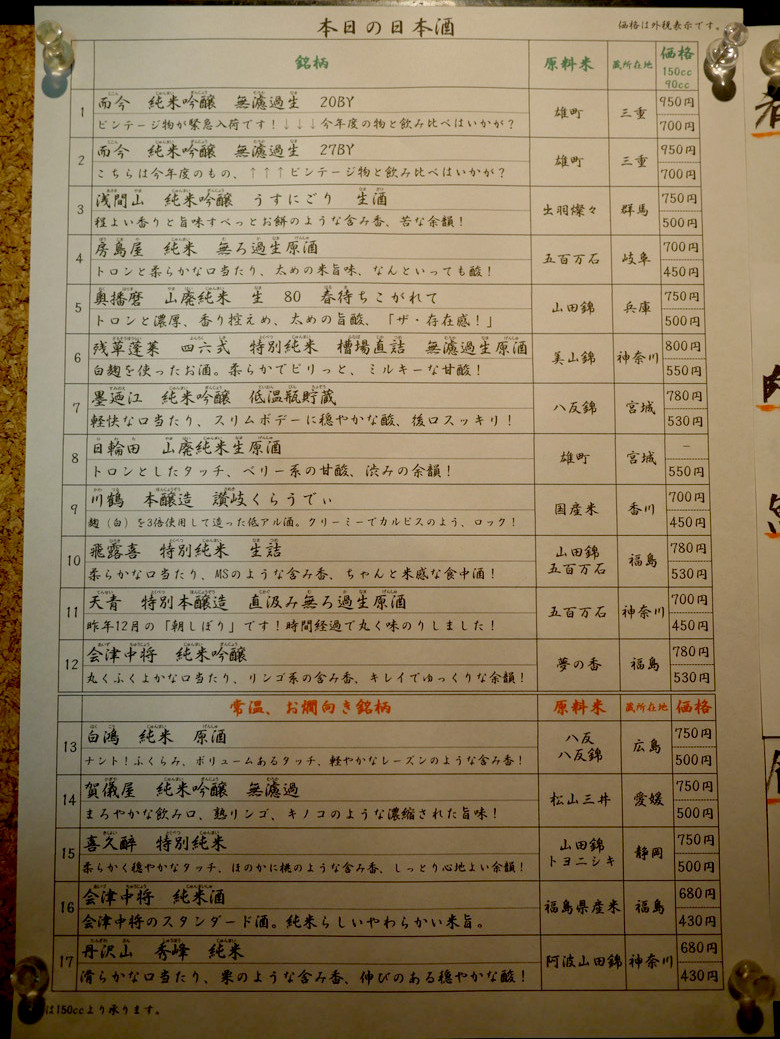 本日の日本酒
価格は外税表示です。
銘柄 原料米 蔵所在地 価格
150cc
90cc
1 而今 純米吟醸 無濾過生 20BY 雄町 三重 950円
ビンテージ物が緊急入荷です！↓↓↓今年度の物と飲み比べはいかが？ 700円
2 而今 純米吟醸 無濾過生 27BY 雄町 三重 950円
こちらは今年度のもの、↑↑↑ビンテージ物と飲み比べはいかが？ 700円
3 浅間山 純米吟醸 うすにごり 生酒 出羽燦々 群馬 750円
程よい香りと旨味すべっとお餅のような含み香、苦な余韻！ 500円
4 房島屋 純米 無ろ過生原酒 五百万石 岐阜 700円
トロンと柔らかな口当たり、太めの米旨味、なんといっても酸！ 450円
5 奥播磨 山廃純米 生 80 春待ちこがれて 山田錦 兵庫 750円
トロンと濃厚、香り控えめ、太めの旨酸、「ザ・存在感！」 500円
6 残草蓬莱 四六式 特別純米 槽場直詰 無濾過生原酒 美山錦 神奈川 800円
白麹を使ったお酒。柔らかでピリっと、ミルキーな甘酸！ 550円
7 墨廼江 純米吟醸 低温瓶貯蔵 八反錦 宮城 780円
軽快な口当たり、スリムボデーに穏やかな酸、後口スッキリ！ 530円
8 日輪田 山廃純米生原酒 雄町 宮城 －
トロンとしたタッチ、ベリー系の甘酸、渋みの余韻！ 550円
9 川鶴 本醸造 讃岐くらうでぃ 国産米 香川 700円
麹（白）を3倍使用して造った低アル酒。クリーミーでカルピスのよう、ロック！ 450円
10 飛露喜 特別純米 生詰 山田錦 五百万石 福島 780円
柔らかな口当たり、MSのような含み香、ちゃんと米感な食中酒！ 530円
11 天青 特別本醸造 直汲み無ろ過生原酒 五百万石 神奈川 700円
昨年12月の「朝しぼり」です！時間経過で丸く味のりしました！ 450円
12 会津中将 純米吟醸 夢の香 福島 780円
丸くふくよかな口当たり、リンゴ系の含み香、キレイでゆっくりな余韻！ 530円
常温、お燗向き銘柄 原料米 蔵所在地 価格
13 白鴻 純米 原酒 八反 八反錦 広島 750円
ナント！ふくらみ、ボリュームあるタッチ、軽やかなレーズンのような含み香！ 500円
14 賀儀屋 純米吟醸 無濾過 松山三井 愛媛 750円
まろやかな飲み口、熟リンゴ、キノコのような濃縮された旨味！ 500円
15 喜久酔 特別純米 山田錦 トヨニシキ 静岡 750円
柔らかく穏やかなタッチ、ほのかに桃のような含み香、しっとり心地よい余韻！ 500円
16 会津中将 純米酒 福島県産米 福島 680円
会津中将のスタンダード酒。純米らしいやわらかい米旨。 430円
17 丹沢山 秀峰 純米 阿波山田錦 神奈川 680円
滑らかな口当たり、栗のような含み香、伸びのある穏やかな酸！ 430円
は150ccより承ります。